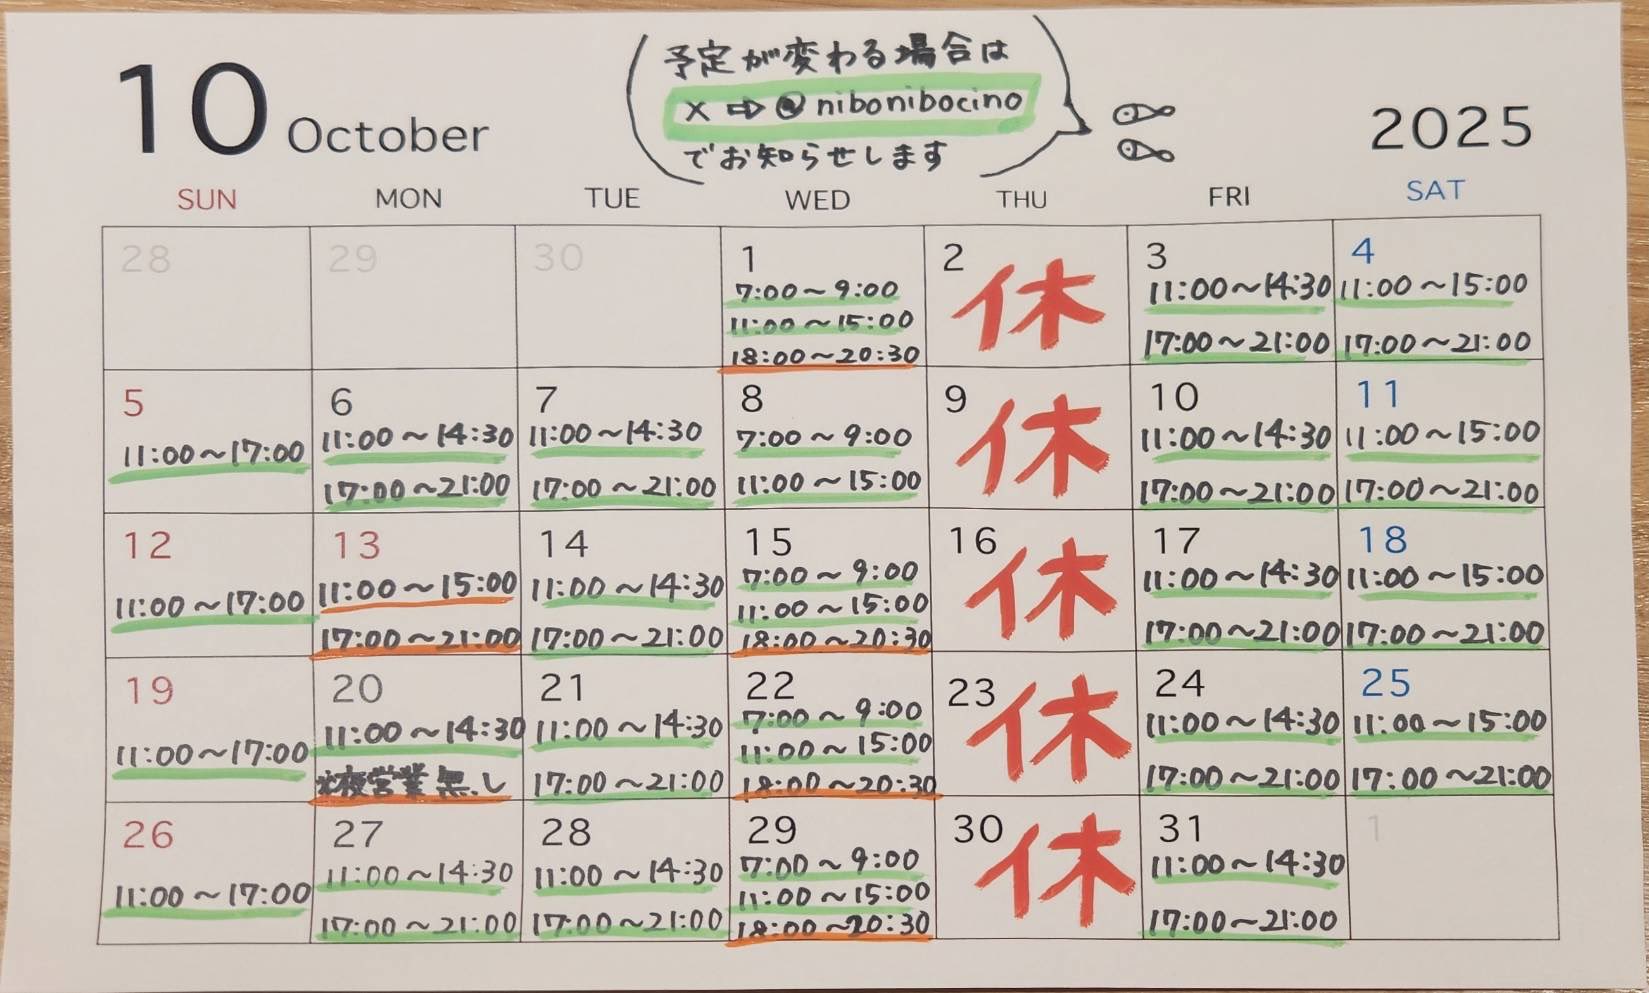 10 October
予定が変わる場合は
X ⇨ @nibonibocino
でお知らせします
2025
SUN MON TUE WED THU FRI SAT
28 29 30 1 2 3 4
7:00～9:00
11:00～15:00
18:00～20:30
休
11:00～14:30
17:00～21:00
11:00～15:00
17:00～21:00
5 6 7 8 9 10 11
11:00～17:00
11:00～14:30
17:00～21:00
11:00～14:30
17:00～21:00
7:00～9:00
11:00～15:00
休
11:00～14:30
17:00～21:00
11:00～15:00
17:00～21:00
12 13 14 15 16 17 18
11:00～17:00
11:00～15:00
17:00～21:00
11:00～14:30
17:00～21:00
7:00～9:00
11:00～15:00
18:00～20:30
休
11:00～14:30
17:00～21:00
11:00～15:00
17:00～21:00
19 20 21 22 23 24 25
11:00～17:00
11:00～14:30
※夜営業無し
11:00～14:30
17:00～21:00
7:00～9:00
11:00～15:00
18:00～20:30
休
11:00～14:30
17:00～21:00
11:00～15:00
17:00～21:00
26 27 28 29 30 31 1
11:00～17:00
11:00～14:30
17:00～21:00
11:00～14:30
17:00～21:00
7:00～9:00
11:00～15:00
18:00～20:30
休
11:00～14:30
17:00～21:00